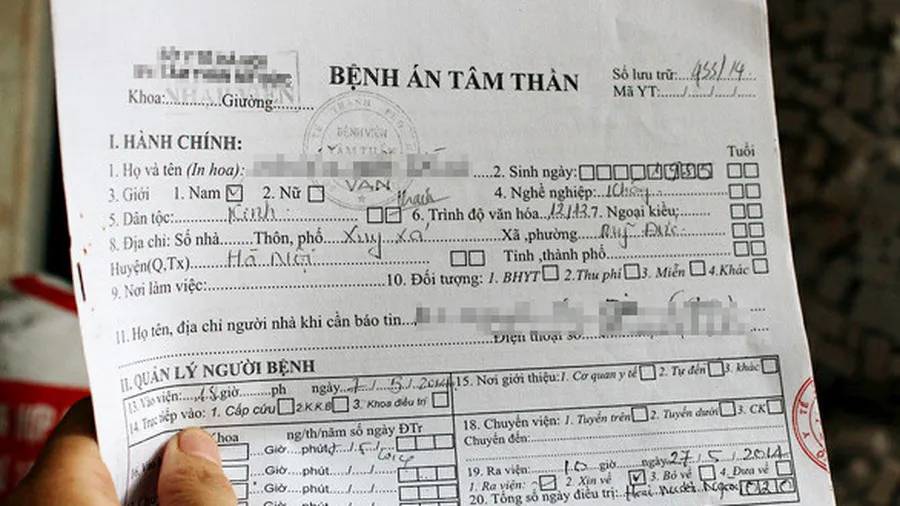 BỆNH ÁN TÂM THẦN
Số lưu trữ: 955/14
Mã YT:....../....../......
Khoa:............Giường
BỆNH VIỆN
TÂM THẦN
VAN
I. HÀNH CHÍNH:
1. Họ và tên (In hoa): 2. Sinh ngày: Tuổi
3. Giới 1. Nam 2. Nữ 4. Nghề nghiệp: Không
5. Dân tộc: Kinh 6. Trình độ văn hóa 12/12 7. Ngoại kiều:
8. Địa chỉ: Số nhà Thôn, phố Xuy Xá Xã ,phường
Huyện(Q,Tx) Hà Nội Tỉnh ,thành phố
9. Nơi làm việc: 10. Đối tượng: 1. BHYT 2.Thu phí 3. Miễn 4.Khác
11. Họ tên, địa chỉ người nhà khi cần báo tin
Điện thoại số
II. QUẢN LÝ NGƯỜI BỆNH
13. Vào viện: giờ ph ngày 2014
14. Trực tiếp vào: 1. Cấp cứu 2.K.K.B 3. Khoa điều trị
15. Nơi giới thiệu: 1. Cơ quan y tế 2. Tự đến 3. khác
Khoa ng/th/năm số ngày ĐTr
Giờ phút
Giờ phút
Giờ phút
18. Chuyển viện: 1. Tuyến trên 2. Tuyến dưới 3. CK
Chuyển đến:
19. Ra viện: 10 giờ ngày 27/5/2014
1. Ra viện: 2. Xin về 3. Bỏ về 4. Đưa về
20. Tổng số ngày điều trị: Hai mươi ngày 020